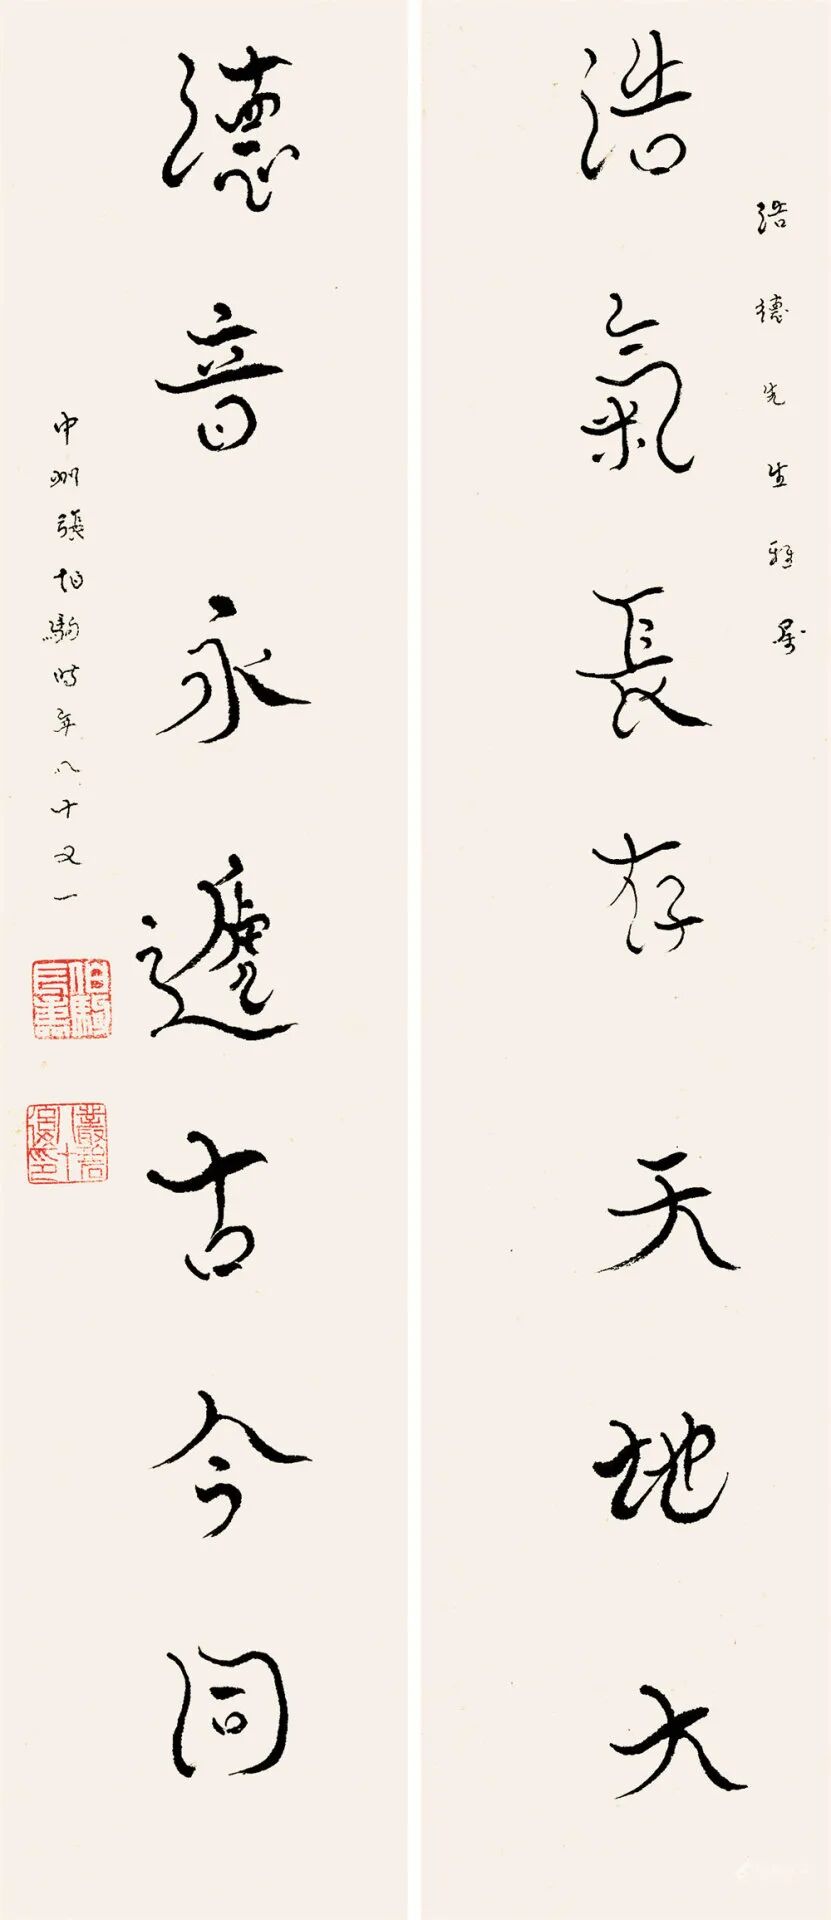 浩德先生雅屬
浩氣長存天地大
德音永遞古今同
中州張伯駒時年八十又一
伯駒
叢碧八十後印